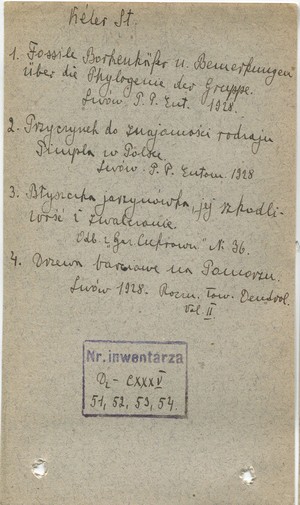 Keler St.
1. Fossile Borkenkäfer u. Bemerkungen
über die Phylogenie der Gruppe.
Lwów. P. P. Ent. 1928.
2. Przyczynek do znajomości rodzaju
Pimpla w Polsce.
Lwów. P. P. Entom. 1928
3. Błyszczka jarzynówka, jej szkodli-
wość i zwalczanie.
Odb. z „Gaz. Cukrown" N. 36.
4. Drzewa barwowe na Pomorzu.
Lwów 1928. Roczn. Tow. Dendrol.
Vol. II.
Nr. inwentarza
Dz - CXXXV
51, 52, 53, 54.